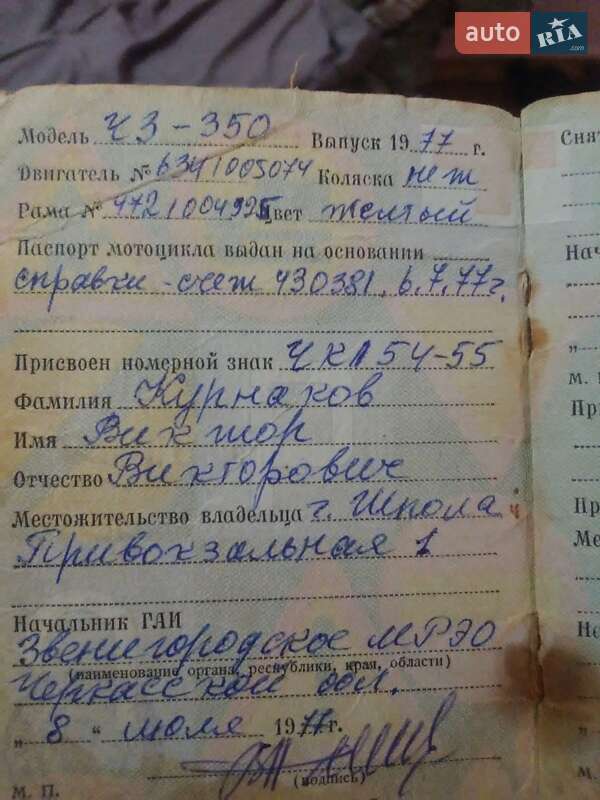 auto RIA .com
Модель ЧЗ-350 Выпуск 1977 г.
Двигатель № 6341005074 Коляска нет
Рама № 4721004925 Цвет желтый
Паспорт мотоцикла выдан на основании
справки-счет 430381, 6.7.77г.
Присвоен номерной знак ЧКЛ 54-55
Фамилия Курнаков
Имя Виктор
Отчество Викторович
Местожительство владельца г. Шпола
Привокзальная 1
Начальник ГАИ
Звенигородское МРЭО
(наименование органа, республики, края, области)
Черкасской обл.
„ 8 “ июля 1977 г.
(подпись)
М. П.